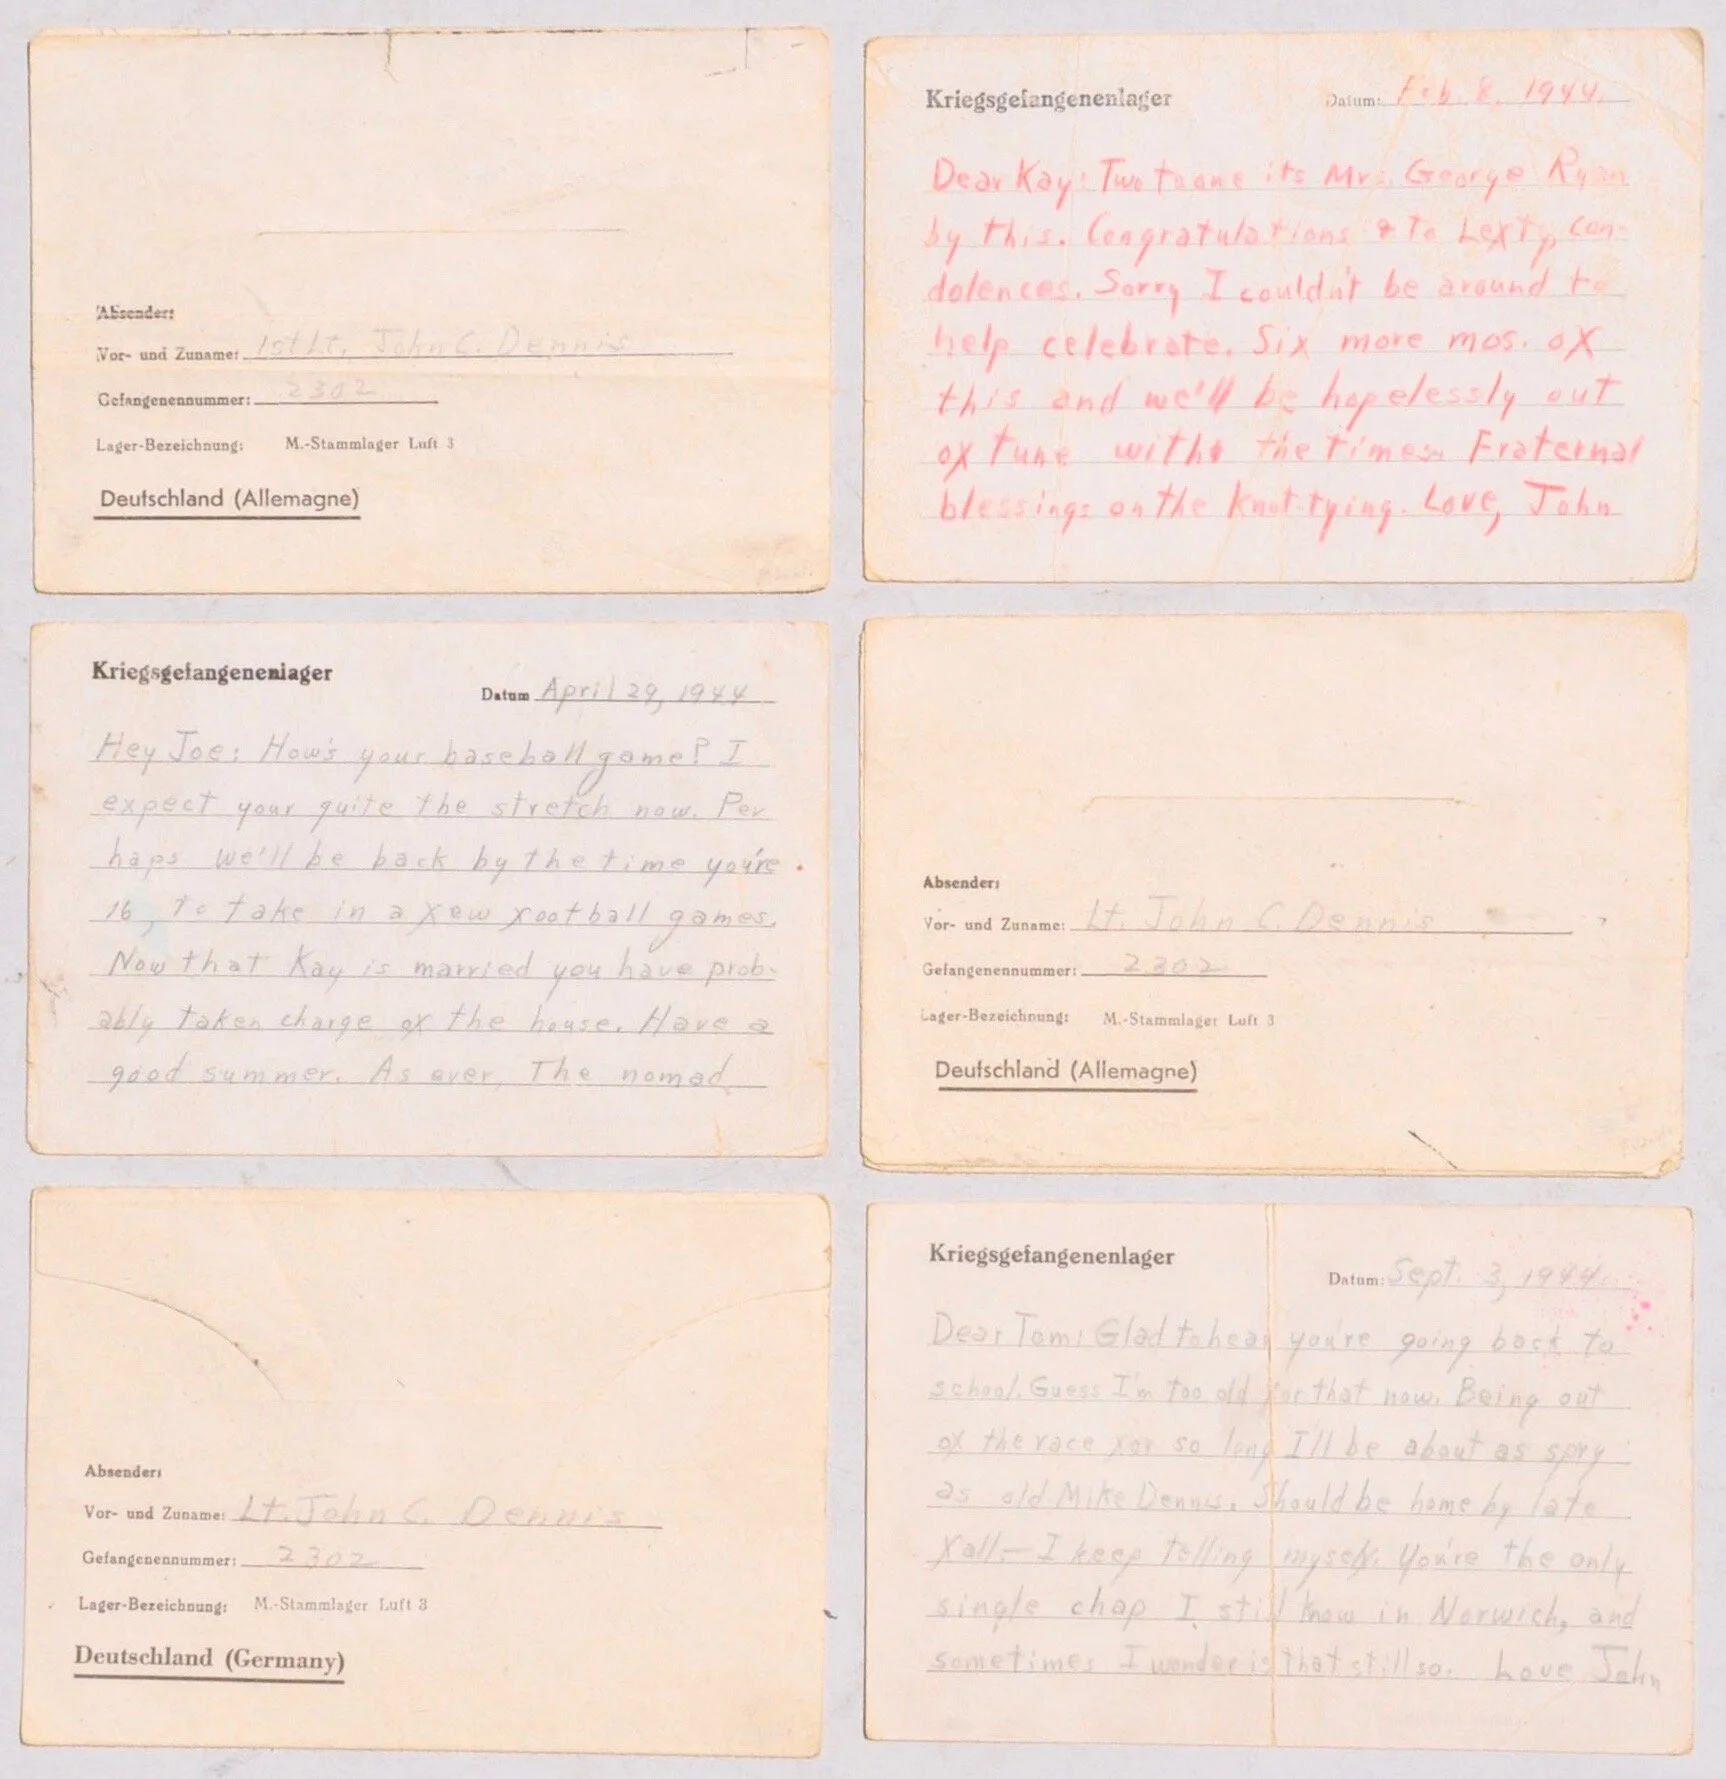 Absender:
Vor- und Zuname: 1st Lt. John C. Dennis
Gefangenennummer: 2302
Lager-Bezeichnung: M.-Stammlager Luft 3
Deutschland (Allemagne)
Kriegsgefangenenlager
Datum: Feb. 8, 1944.
Dear Kay: Two to one its Mrs. George Ryan
by this. Congratulations & to Lexty, con-
dolences. Sorry I couldn't be around to
help celebrate. Six more mos. of
this and we'll be hopelessly out
of tune with the times. Fraternal
blessings on the knot-tying. Love, John
Kriegsgefangenenlager
Datum April 29, 1944
Hey Joe: How's your baseball game? I
expect your quite the stretch now. Per
haps we'll be back by the time you're
16, to take in a few football games.
Now that Kay is married you have prob-
ably taken charge of the house. Have a
good summer. As ever, The nomad
Absender:
Vor- und Zuname: Lt. John C. Dennis
Gefangenennummer: 2302
Lager-Bezeichnung: M.-Stammlager Luft 3
Deutschland (Allemagne)
Absender:
Vor- und Zuname: Lt. John C. Dennis
Gefangenennummer: 2302
Lager-Bezeichnung: M.-Stammlager Luft 3
Deutschland (Germany)
Kriegsgefangenenlager
Datum: Sept. 3, 1944
Dear Tom: Glad to hear you're going back to
school. Guess I'm too old for that now. Being out
of the race for so long I'll be about as spry
as old Mike Dennis. Should be home by late
fall — I keep telling myself. You're the only
single chap I still know in Norwich, and
sometimes I wonder is that still so. Love John